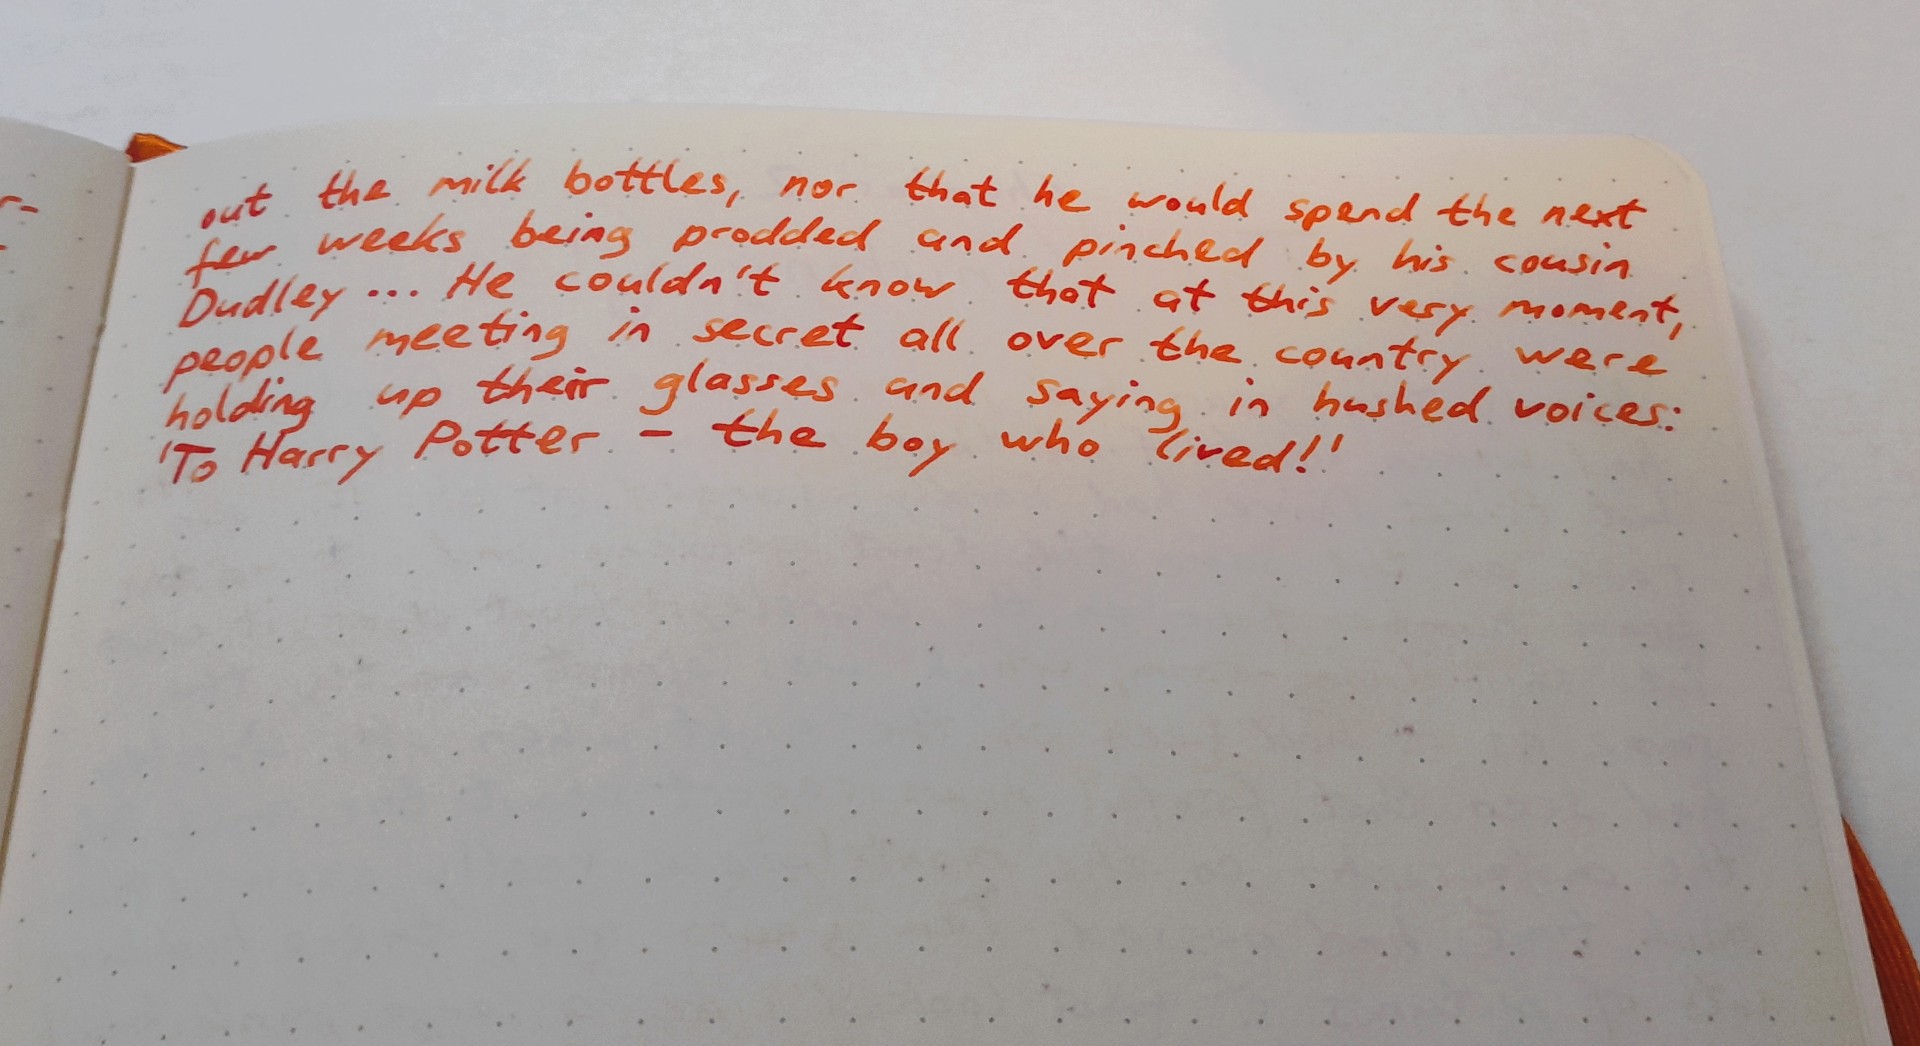 out the milk bottles, nor that he would spend the next
few weeks being prodded and pinched by his cousin
Dudley... He couldn't know that at this very moment,
people meeting in secret all over the country were
holding up their glasses and saying in hushed voices:
'To Harry Potter - the boy who lived!'